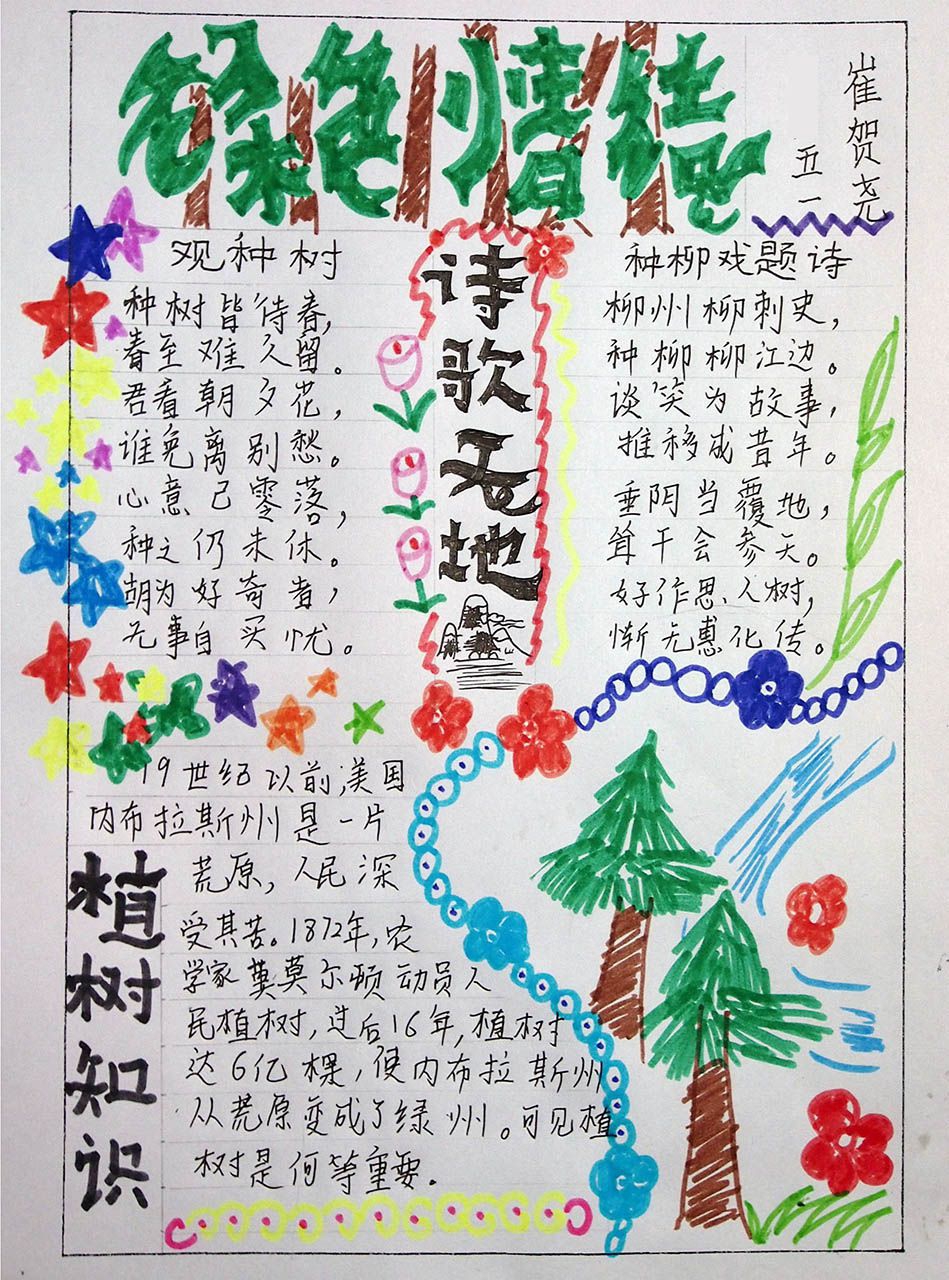 绿色情结
崔贺尧
五一
观种树
种树皆待春，
春至难久留。
君看朝夕花，
谁免离别愁。
心意已零落，
种之仍未休。
胡为好奇者，
无事自买忧。
诗歌天地
种柳戏题诗
柳州柳刺史，
种柳柳江边。
谈笑为故事，
推移成昔年。
垂阴当覆地，
耸干会参天。
好作思人树，
惭无惠化传。
植树知识
19世纪以前，美国
内布拉斯州是一片
荒原，人民深
受其苦。1872年，农
学家莫尔顿动员人
民植树，过后16年，植树
达6亿棵，使内布拉斯州
从荒原变成了绿州。可见植
树是何等重要.